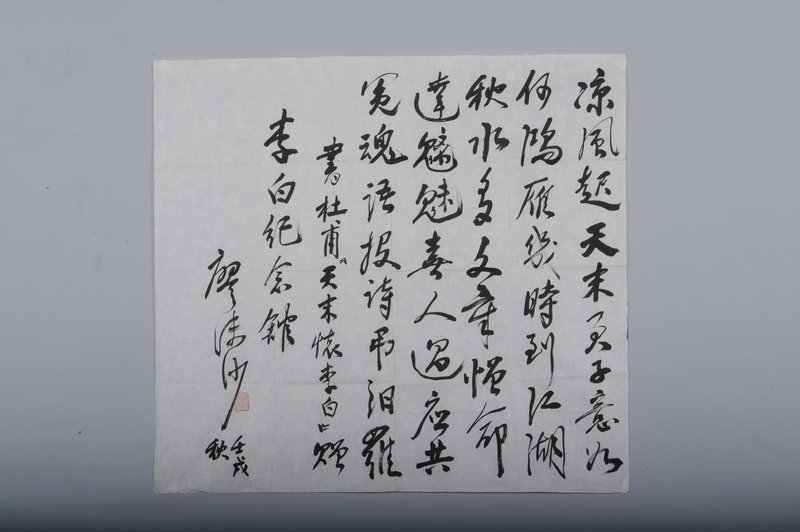 凉风起天末君子意如
何鸿雁几时到江湖
秋水多文章憎命
达魑魅喜人过应共
冤魂语投诗吊汨羅
書杜甫“天末懷李白”贈
李白纪念館
廖沫沙
壬戌
秋